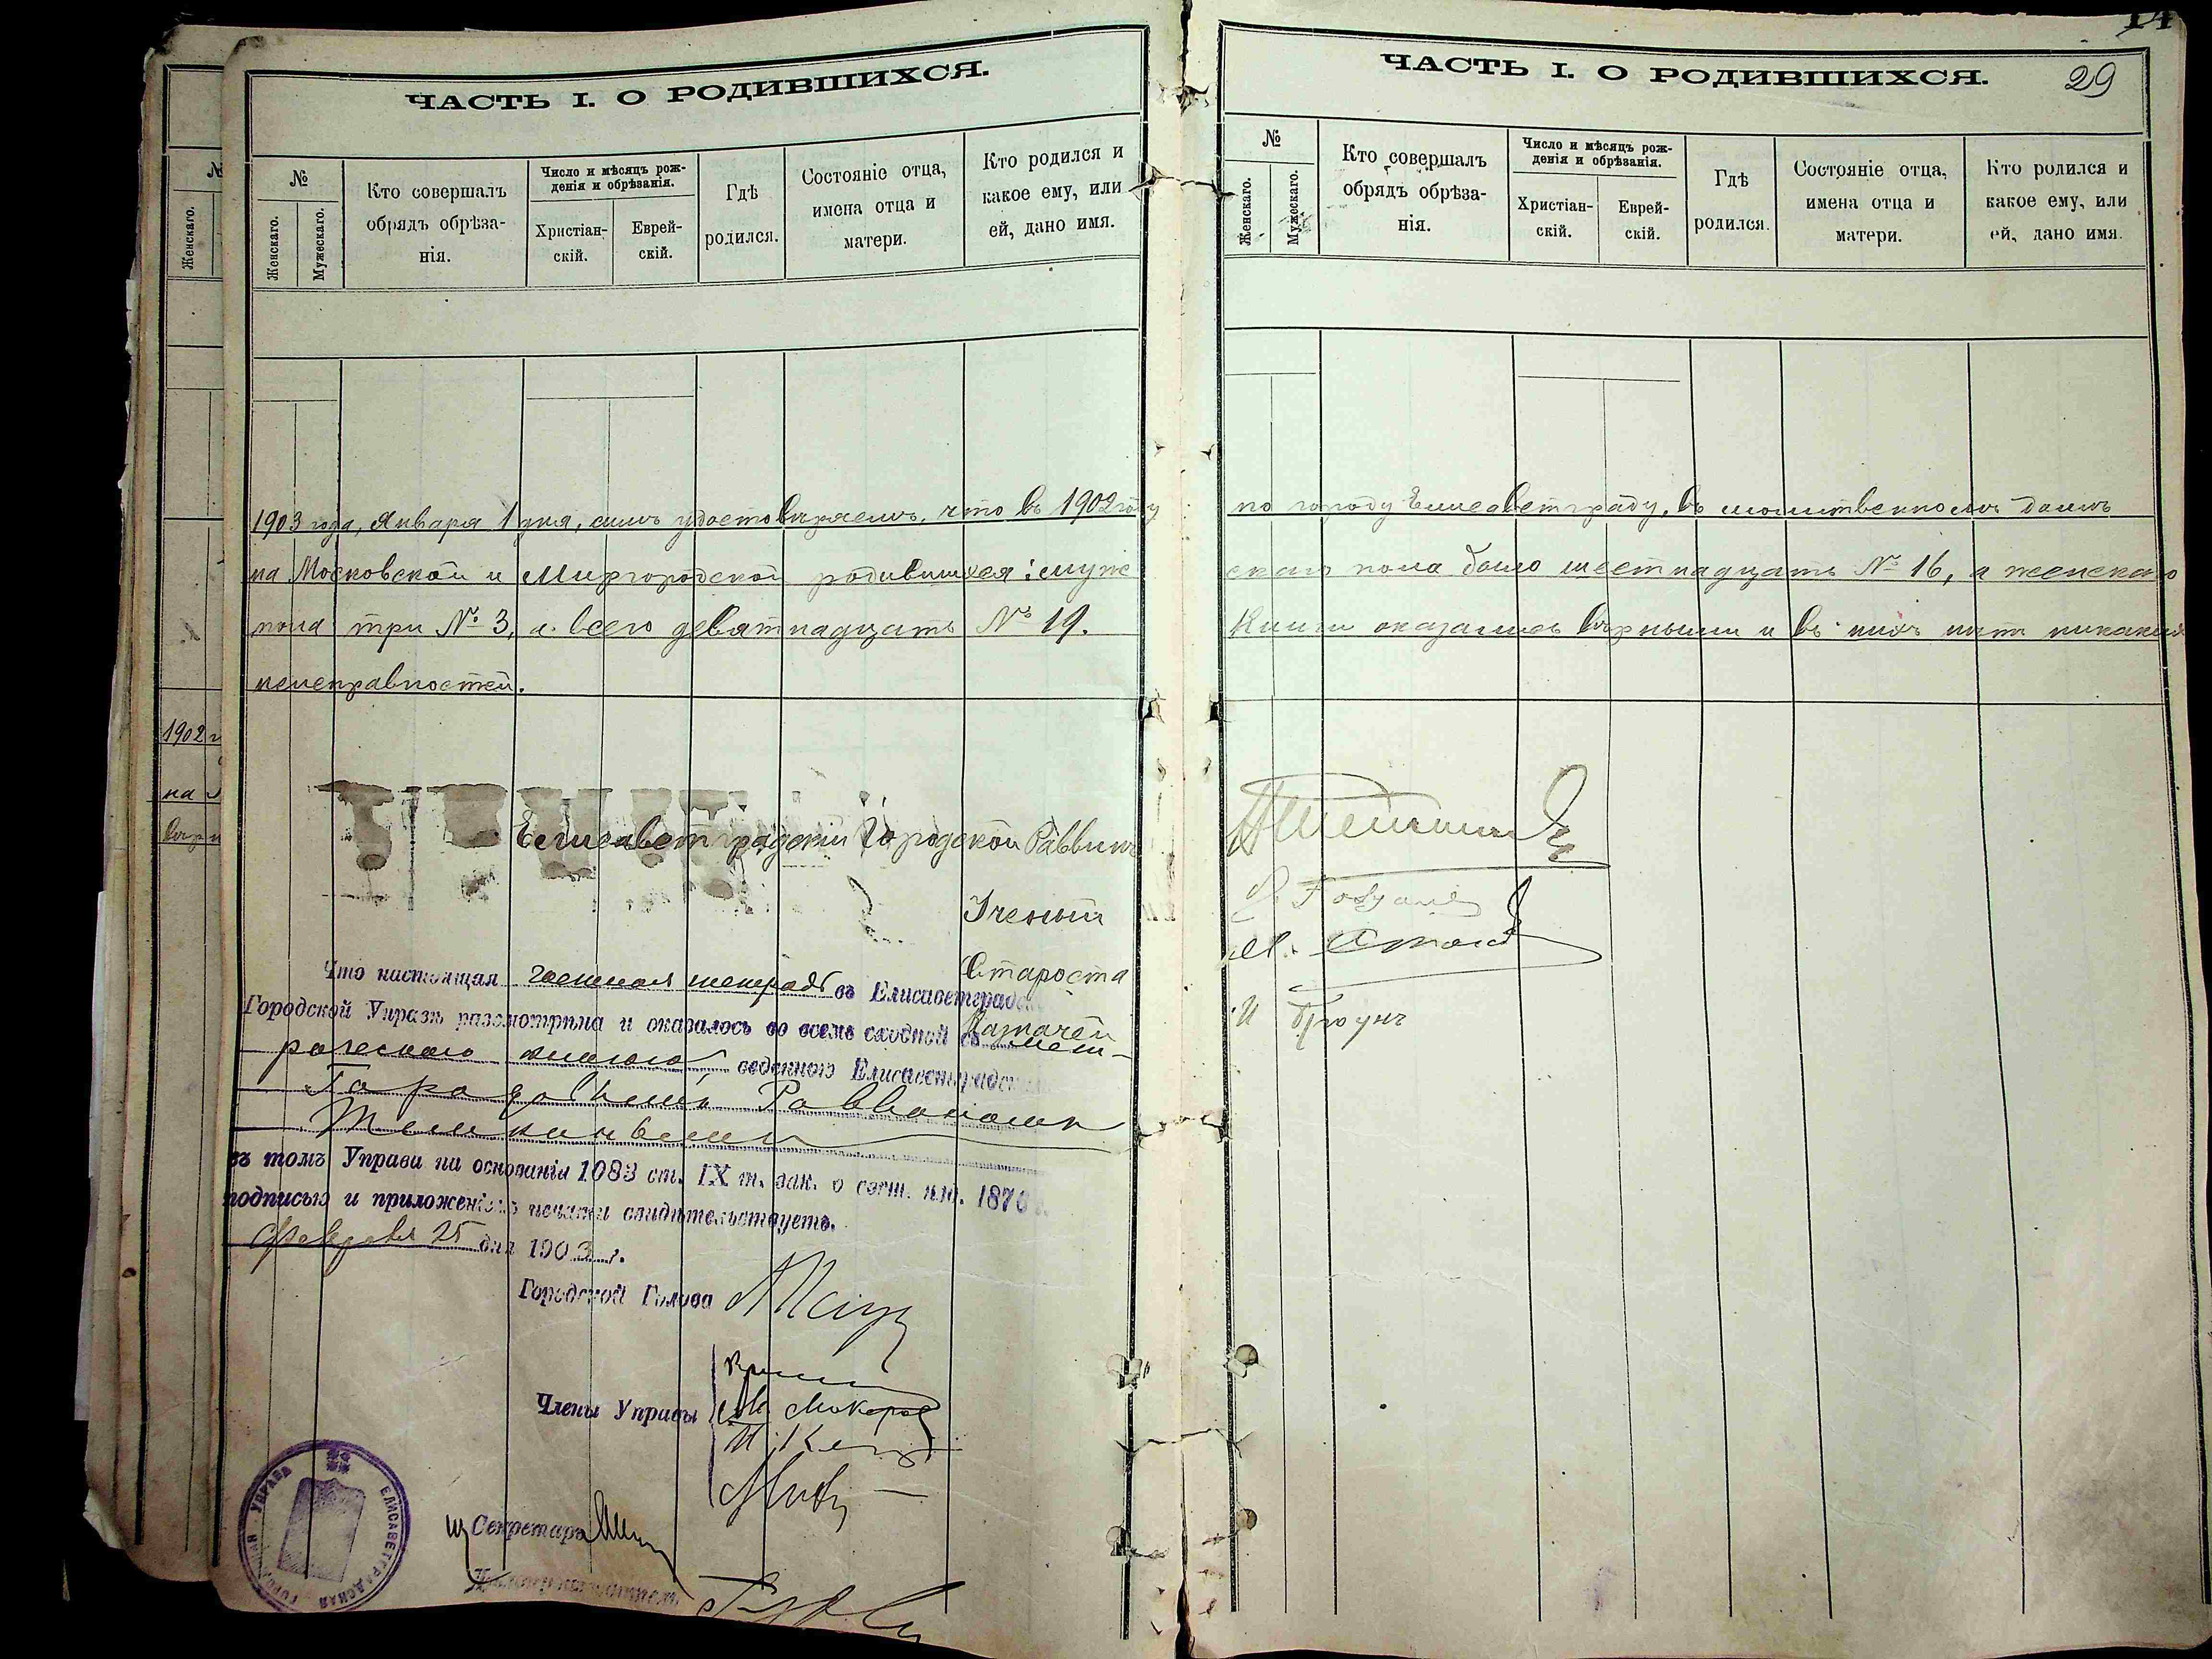 ЧАСТЬ I. О РОДИВШИХСЯ.
№
Женскаго.
Мужескаго.
Кто совершалъ обрядъ обрѣза-
нія.
Число и мѣсяцъ рож-
денія и обрѣзанія.
Христіан-
скій.
Еврей-
скій.
Гдѣ
родился.
Состояніе отца,
имена отца и
матери.
Кто родился и
какое ему, или
ей, дано имя.
1903 года, Января 1 дня, симъ удостовѣряемъ, что въ 1902 году
на Московской и Миргородской родившихся: муже
пола три № 3, а всего девятнадцать № 19.
неисправностей.
Елисаветградскій Городской Раввинъ
Ученый
Староста
Казначей
Что настоящая тетрадь въ Елисаветград
Городской Управѣ разсмотрѣна и оказалось во всемъ сходной съ мет-
рическою книгою, веденною Елисаветград
Городовымъ Раввиномъ
въ томъ Управа на основаніи 1083 ст. IX т. зак. о сост. изд. 1876
подписью и приложеніемъ печати свидѣтельствуетъ.
Февраля 25 дня 1903 г.
Городской Голова
Члены Управы
М. Макаров
Секретарь
ЕЛИСАВЕТГРАДСКАЯ ГОРОД УПРАВА
№
Женскаго.
1902 г
на
14
ЧАСТЬ I. О РОДИВШИХСЯ.
29
№
Женскаго.
Мужескаго.
Кто совершалъ
обрядъ обрѣза-
нія.
Число и мѣсяцъ рож-
денія и обрѣзанія.
Христіан-
скій.
Еврей-
скій.
Гдѣ
родился.
Состояніе отца,
имена отца и
матери.
Кто родился и
какое ему, или
ей, дано имя.
по городу Елисаветграду, въ молитвенномъ домѣ
скаго пола было шестнадцать № 16, а женскаго
Книги оказались вѣрными и въ нихъ нѣтъ никакихъ
И Браунъ